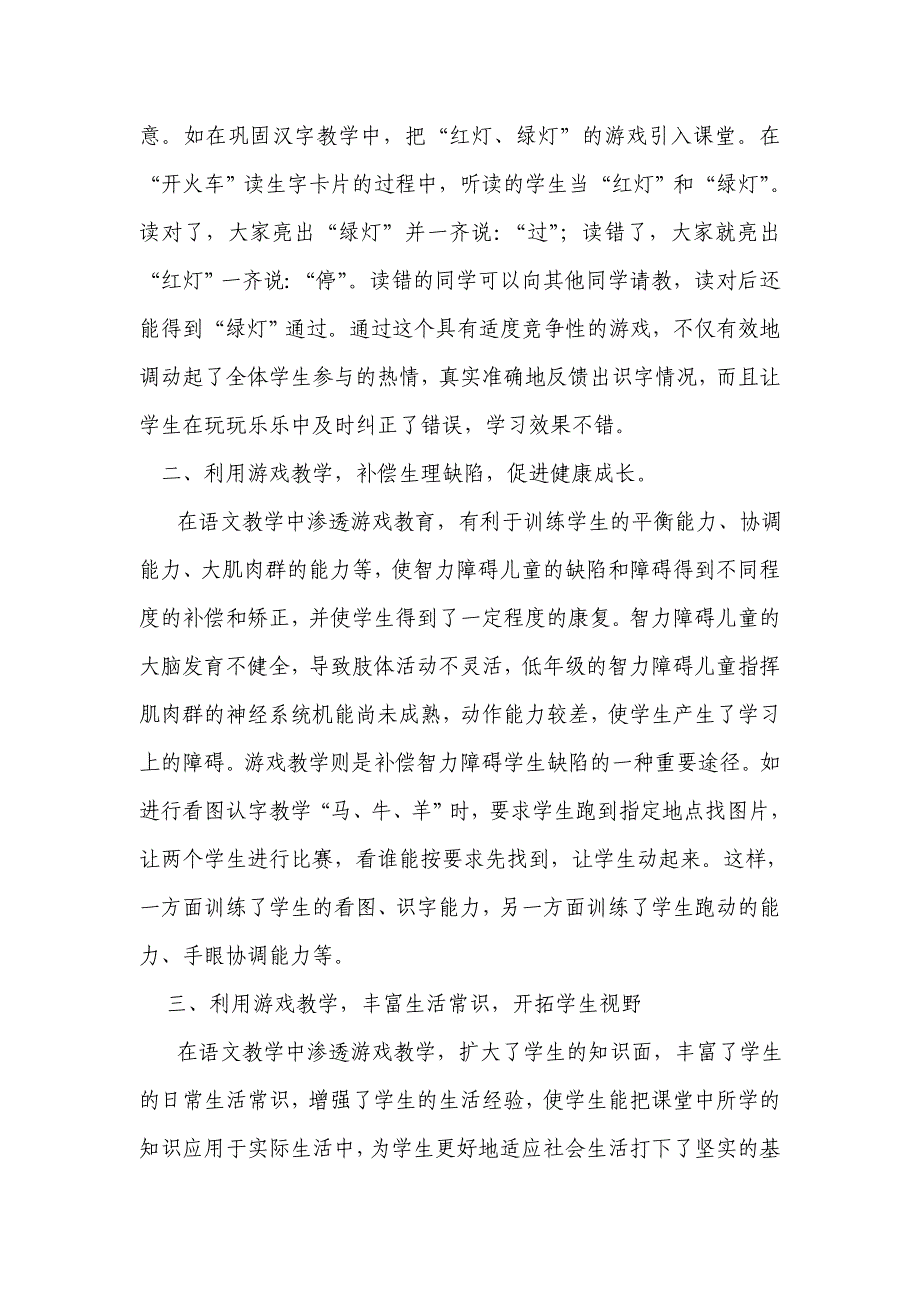 意。如在巩固汉字教学中，把“红灯、绿灯”的游戏引入课堂。在
“开火车”读生字卡片的过程中，听读的学生当“红灯”和“绿灯”。
读对了，大家亮出“绿灯”并一齐说：“过”；读错了，大家就亮出
“红灯”一齐说：“停”。读错的同学可以向其他同学请教，读对后还
能得到“绿灯”通过。通过这个具有适度竞争性的游戏，不仅有效地
调动起了全体学生参与的热情，真实准确地反馈出识字情况，而且让
学生在玩玩乐乐中及时纠正了错误，学习效果不错。
二、利用游戏教学，补偿生理缺陷，促进健康成长。
在语文教学中渗透游戏教育，有利于训练学生的平衡能力、协调
能力、大肌肉群的能力等，使智力障碍儿童的缺陷和障碍得到不同程
度的补偿和矫正，并使学生得到了一定程度的康复。智力障碍儿童的
大脑发育不健全，导致肢体活动不灵活，低年级的智力障碍儿童指挥
肌肉群的神经系统机能尚未成熟，动作能力较差，使学生产生了学习
上的障碍。游戏教学则是补偿智力障碍学生缺陷的一种重要途径。如
进行看图认字教学“马、牛、羊”时，要求学生跑到指定地点找图片，
让两个学生进行比赛，看谁能按要求先找到，让学生动起来。这样，
一方面训练了学生的看图、识字能力，另一方面训练了学生跑动的能
力、手眼协调能力等。
三、利用游戏教学，丰富生活常识，开拓学生视野
在语文教学中渗透游戏教学，扩大了学生的知识面，丰富了学生
的日常生活常识，增强了学生的生活经验，使学生能把课堂中所学的
知识应用于实际生活中，为学生更好地适应社会生活打下了坚实的基